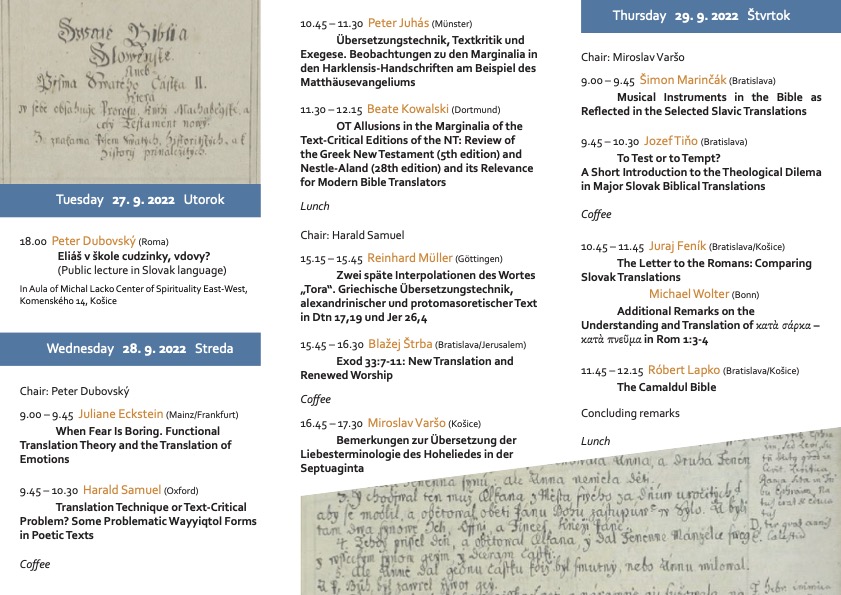 Swaté Biblia
Slowénské
Aneb
Pjsma Swatého Částka II.
Která
w sebe obsahuge Proroku, knihi Machabegské, a
celý Testament nowý.
Tuesday 27. 9. 2022 Utorok
18.00 Peter Dubovský (Roma)
Eliáš v škole cudzinky, vdovy?
(Public lecture in Slovak language)
In Aula of Michal Lacko Center of Spirituality East-West,
Komenského 14, Košice
Wednesday 28. 9. 2022 Streda
Chair: Peter Dubovský
9.00 – 9.45 Juliane Eckstein (Mainz/Frankfurt)
When Fear Is Boring. Functional
Translation Theory and the Translation of
Emotions
9.45 – 10.30 Harald Samuel (Oxford)
Translation Technique or Text-Critical
Problem? Some Problematic Wayyiqtol Forms
in Poetic Texts
Coffee
10.45 – 11.30 Peter Juhás (Münster)
Übersetzungstechnik, Textkritik und
Exegese. Beobachtungen zu den Marginalia in
den Harklensis-Handschriften am Beispiel des
Matthäusevangeliums
11.30 – 12.15 Beate Kowalski (Dortmund)
OT Allusions in the Marginalia of the
Text-Critical Editions of the NT: Review of
the Greek New Testament (5th edition) and
Nestle-Aland (28th edition) and its Relevance
for Modern Bible Translators
Lunch
Chair: Harald Samuel
15.15 – 15.45 Reinhard Müller (Göttingen)
Zwei späte Interpolationen des Wortes
„Tora“. Griechische Übersetzungstechnik,
alexandrinischer und protomasoretischer Text
in Dtn 17,19 und Jer 26,4
15.45 – 16.30 Blažej Štrba (Bratislava/Jerusalem)
Exod 33:7-11: New Translation and
Renewed Worship
Coffee
16.45 – 17.30 Miroslav Varšo (Košice)
Bemerkungen zur Übersetzung der
Liebesterminologie des Hoheliedes in der
Septuaginta
Thursday 29. 9. 2022 Štvrtok
Chair: Miroslav Varšo
9.00 – 9.45 Šimon Marinčák (Bratislava)
Musical Instruments in the Bible as
Reflected in the Selected Slavic Translations
9.45 – 10.30 Jozef Tiňo (Bratislava)
To Test or to Tempt?
A Short Introduction to the Theological Dilema
in Major Slovak Biblical Translations
Coffee
10.45 – 11.45 Juraj Feník (Bratislava/Košice)
The Letter to the Romans: Comparing
Slovak Translations
Michael Wolter (Bonn)
Additional Remarks on the
Understanding and Translation of κατὰ σάρκα –
κατὰ πνεῦμα in Rom 1:3-4
11.45 – 12.15 Róbert Lapko (Bratislava/Košice)
The Camaldul Bible
Concluding remarks
Lunch